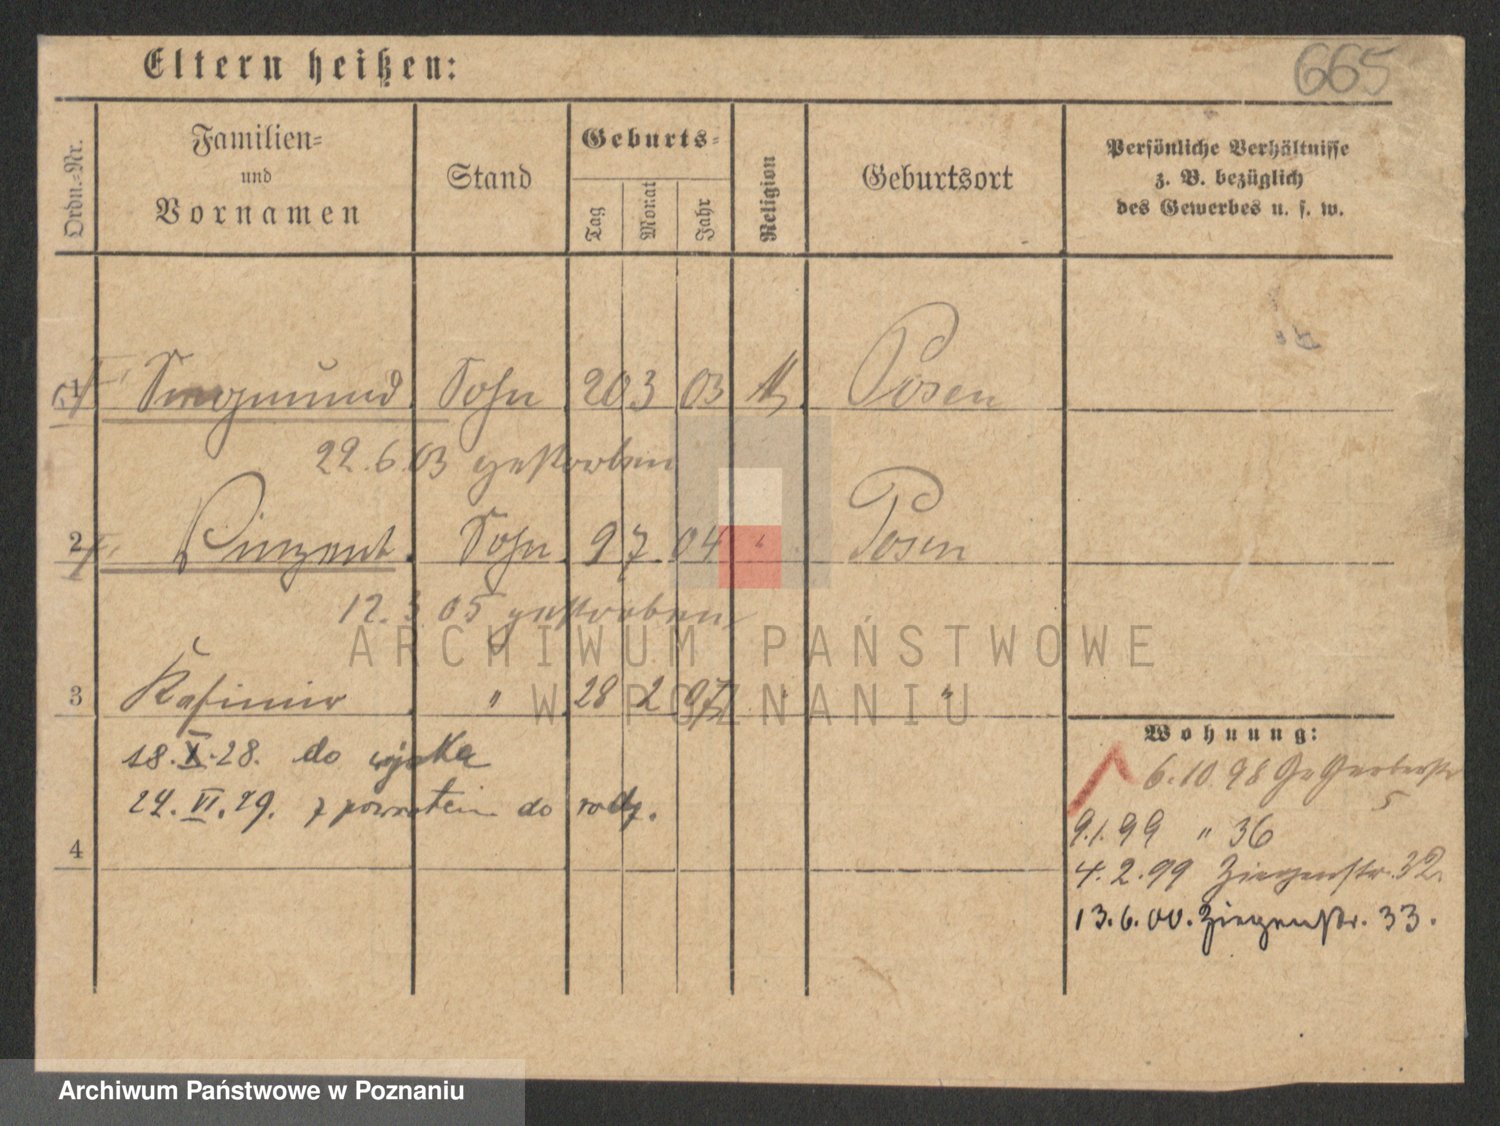 Eltern heißen:
665
Ordn.-Nr.
Familien- und Vornamen
Stand
Geburts-
Tag
Monat
Jahr
Religion
Geburtsort
Persönliche Verhältnisse
z. B. bezüglich
des Gewerbes u. s. w.
1 Siegmund. Sohn 20 3 03 Posen
22.6.03 gestorben
2 Vinzent. Sohn. 9 7. 04 " Posen
12.3.05 gestorben
3 Kasimir " 28 2 97 " "
18.X.28. do wojska
24.VI.29. z powrotem do rodz.
4
Wohnung:
6.10.98 Gr Gerberstr
5
9.1.99 " 36
4.2.99 Ziegenstr. 32.
13.6.00. Ziegenstr. 33.
ARCHIWUM PAŃSTWOWE
W POZNANIU
Archiwum Państwowe w Poznaniu